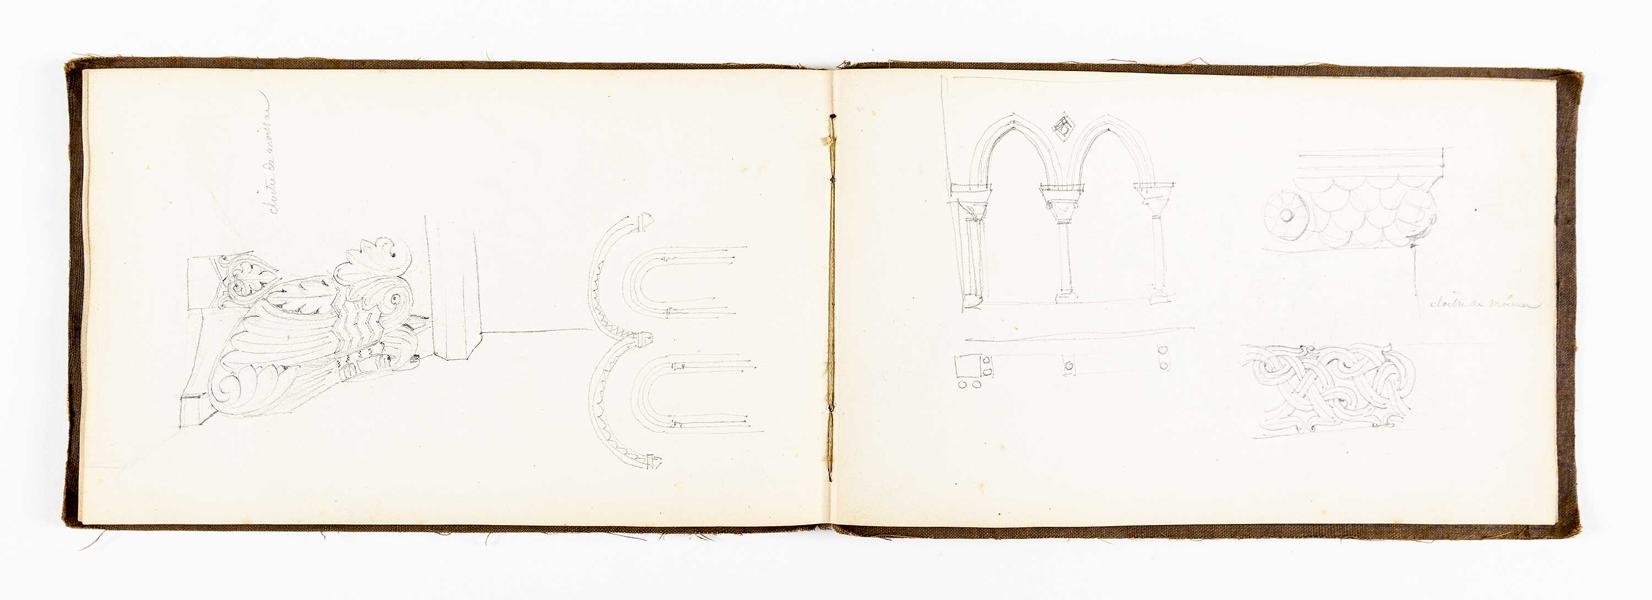 cloitre de moissac
cloitre de moissac